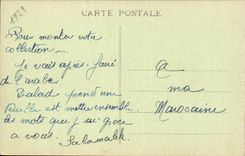 1921
CARTE POSTALE
Pour monter votre
collection
Je vais après faire
de l'arabe
Balad prend une
est mettre ensemble
les mots que j'ai grace
a vous. Salamalek
A
ma
Marocaine